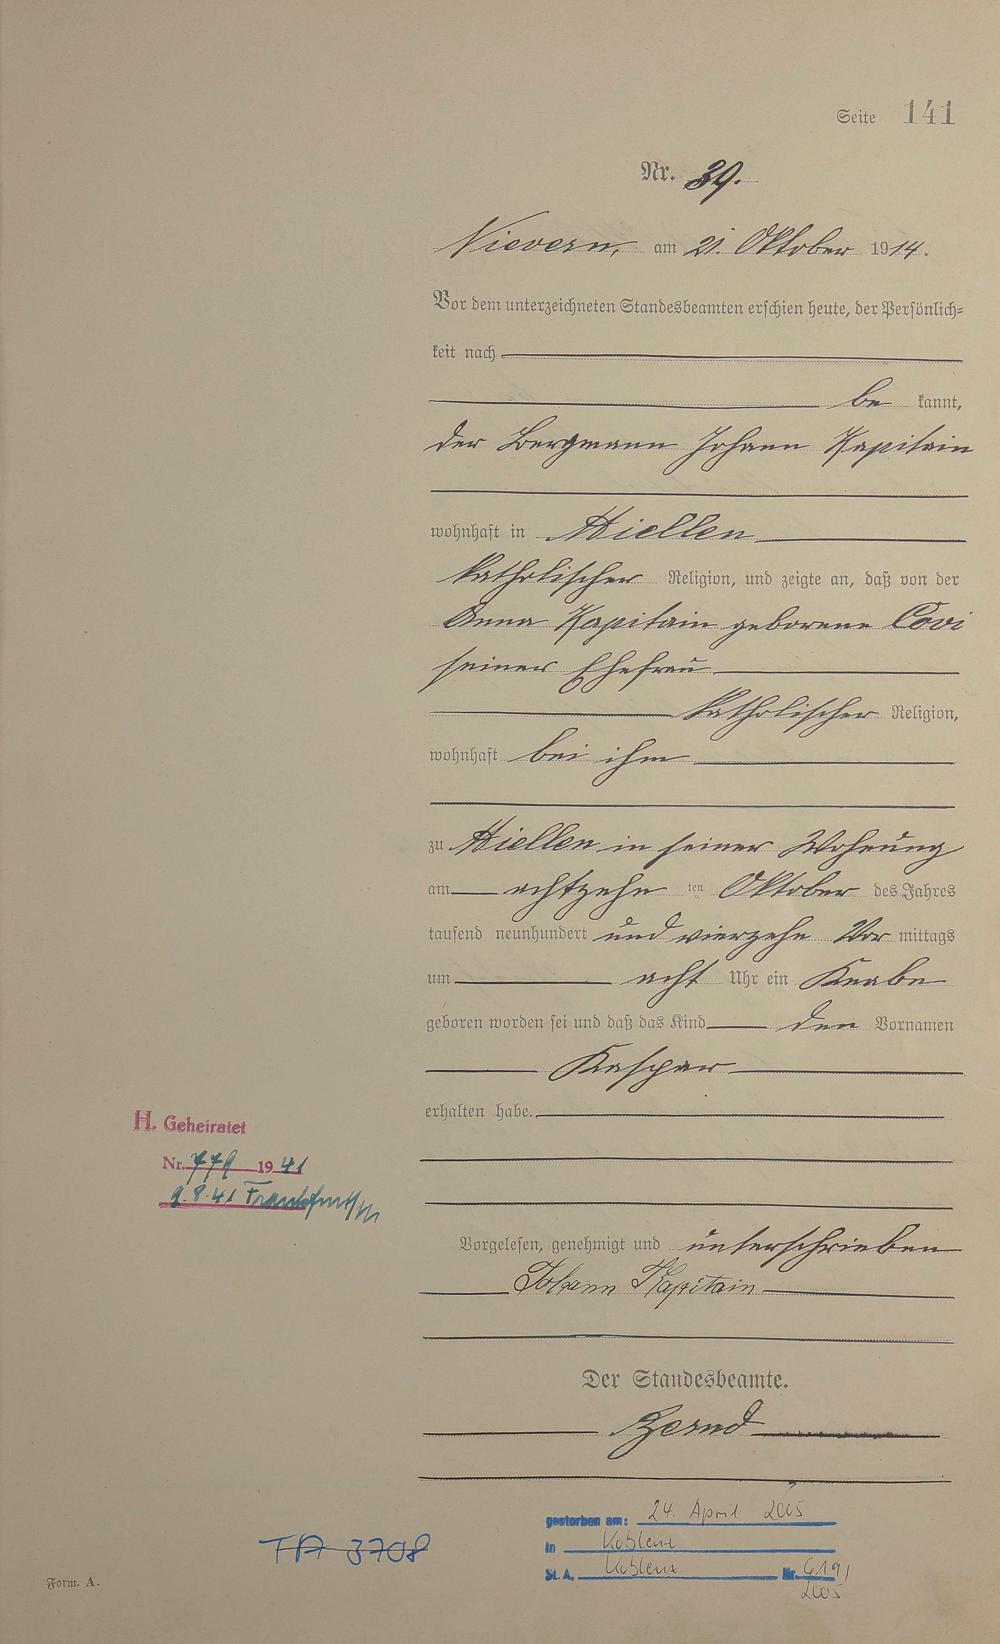 Seite 141
Nr. 39.
Nievern, am 21. Oktober 1914.
Vor dem unterzeichneten Standesbeamten erschien heute, der Persönlich-
keit nach
be kannt,
der Bergmann Johann Kapitain
wohnhaft in Miellen
katholischer Religion, und zeigte an, daß von der
Anna Kapitain geborene Covi
seiner Ehefrau
katholischer Religion,
wohnhaft bei ihm
zu Miellen in seiner Wohnung
am achtzehn ten Oktober des Jahres
tausend neunhundert und vierzehn Vor mittags
um acht Uhr ein Knabe
geboren worden sei und daß das Kind den Vornamen
Kaspar
erhalten habe.
H. Geheiratet
Nr. 779 1941
9.8.41 Frankfurt/M
Vorgelesen, genehmigt und unterschrieben
Johann Kapitain
Der Standesbeamte.
Bernd
gestorben am: 24. April 2005
in Koblenz
St. A. Koblenz Nr. 619/
2005
TA 3708
Form. A.